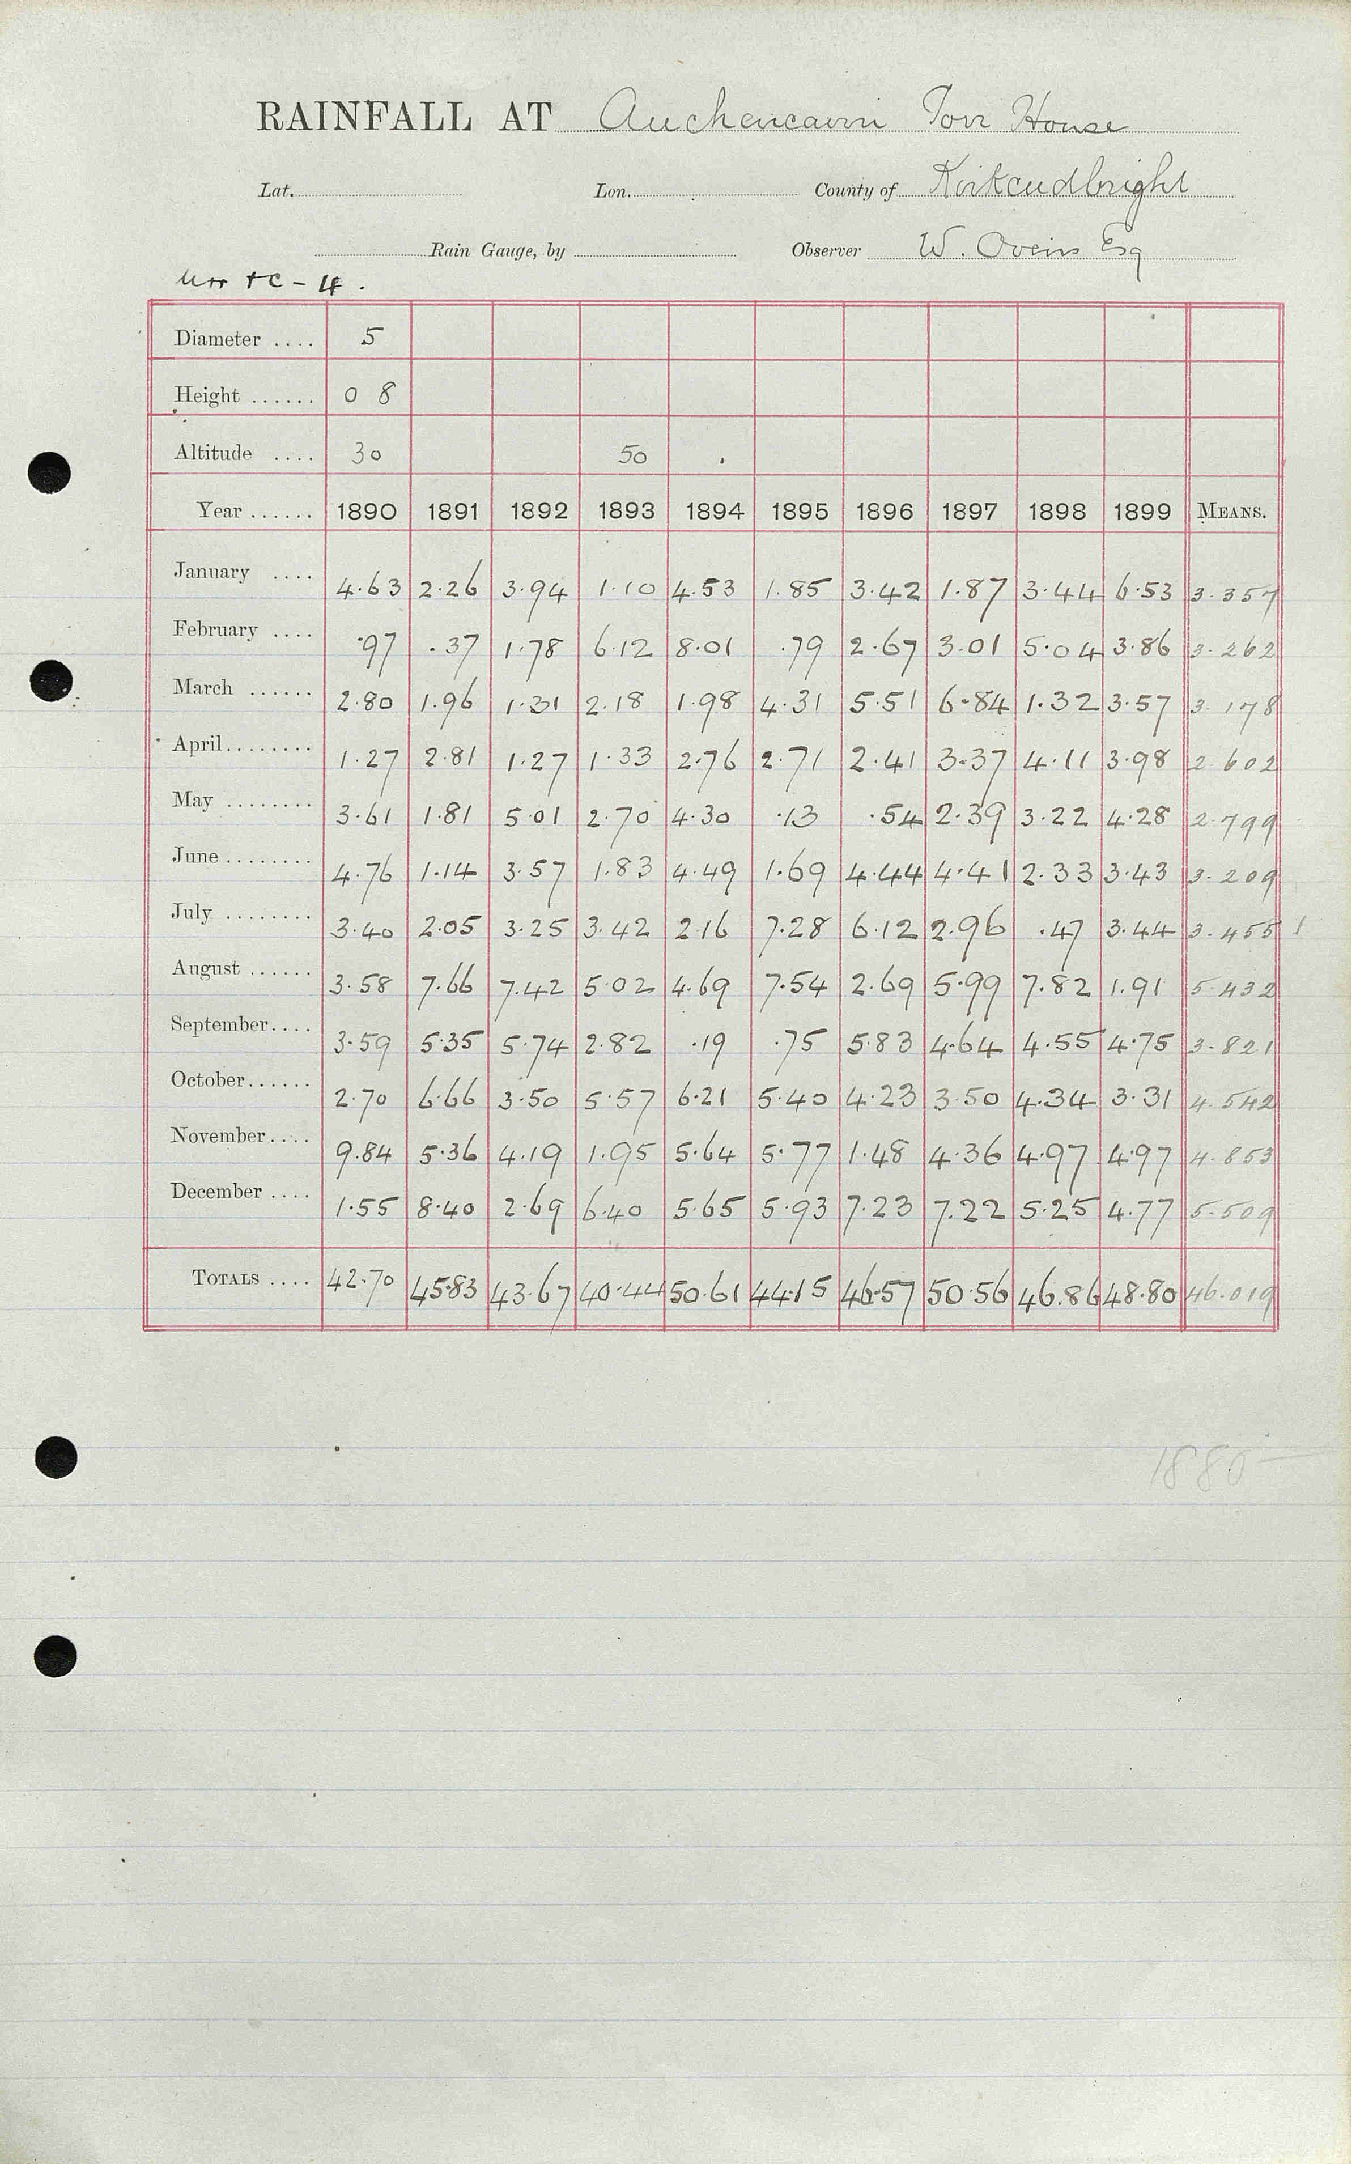 RAINFALL AT Auchencairn Torr House
Lat. Lon. County of Kirkcudbright
Rain Gauge, by Observer W. Ovens Esq
Urr &c - 4.
Diameter .... 5
Height ...... 0 8
Altitude .... 30 50
Year ...... 1890 1891 1892 1893 1894 1895 1896 1897 1898 1899 MEANS.
January .... 4.63 2.26 3.94 1.10 4.53 1.85 3.42 1.87 3.44 6.53 3.357
February .... .97 .37 1.78 6.12 8.01 .79 2.67 3.01 5.04 3.86 3.262
March ...... 2.80 1.96 1.31 2.18 1.98 4.31 5.51 6.84 1.32 3.57 3.178
April........ 1.27 2.81 1.27 1.33 2.76 2.71 2.41 3.37 4.11 3.98 2.602
May ........ 3.61 1.81 5.01 2.70 4.30 .13 .54 2.39 3.22 4.28 2.799
June ........ 4.76 1.14 3.57 1.83 4.49 1.69 4.44 4.41 2.33 3.43 3.209
July ........ 3.40 2.05 3.25 3.42 2.16 7.28 6.12 2.96 .47 3.44 3.455 1
August ...... 3.58 7.66 7.42 5.02 4.69 7.54 2.69 5.99 7.82 1.91 5.432
September.... 3.59 5.35 5.74 2.82 .19 .75 5.83 4.64 4.55 4.75 3.821
October...... 2.70 6.66 3.50 5.57 6.21 5.40 4.23 3.50 4.34 3.31 4.542
November.... 9.84 5.36 4.19 1.95 5.64 5.77 1.48 4.36 4.97 4.97 4.853
December .... 1.55 8.40 2.69 6.40 5.65 5.93 7.23 7.22 5.25 4.77 5.509
TOTALS .... 42.70 45.83 43.67 40.44 50.61 44.15 46.57 50.56 46.86 48.80 46.019
1880 —